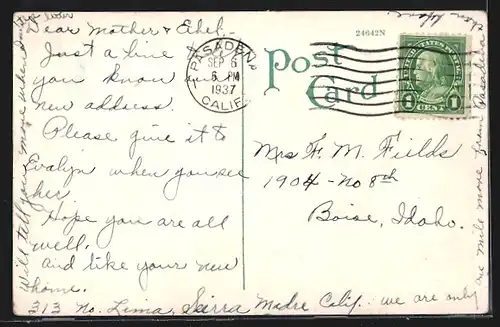 Dear Mother & Ethel.
Just a line to let
you know our
new address.
Please give it to
Evalyn when you see
her.
Hope you are all
well.
and like your new
home.
313 No. Lima, Sierra Madre Calif. we are only
one mile more from Pasadena
than before
Will tell you more when I write
later
24642N
Post
Card
PASADENA
SEP 6
6 PM
1937
CALIF.
UNITED STATES POSTAGE
1 CENT 1
Mrs F. M. Fields
1904 - No 8th
Boise, Idaho.